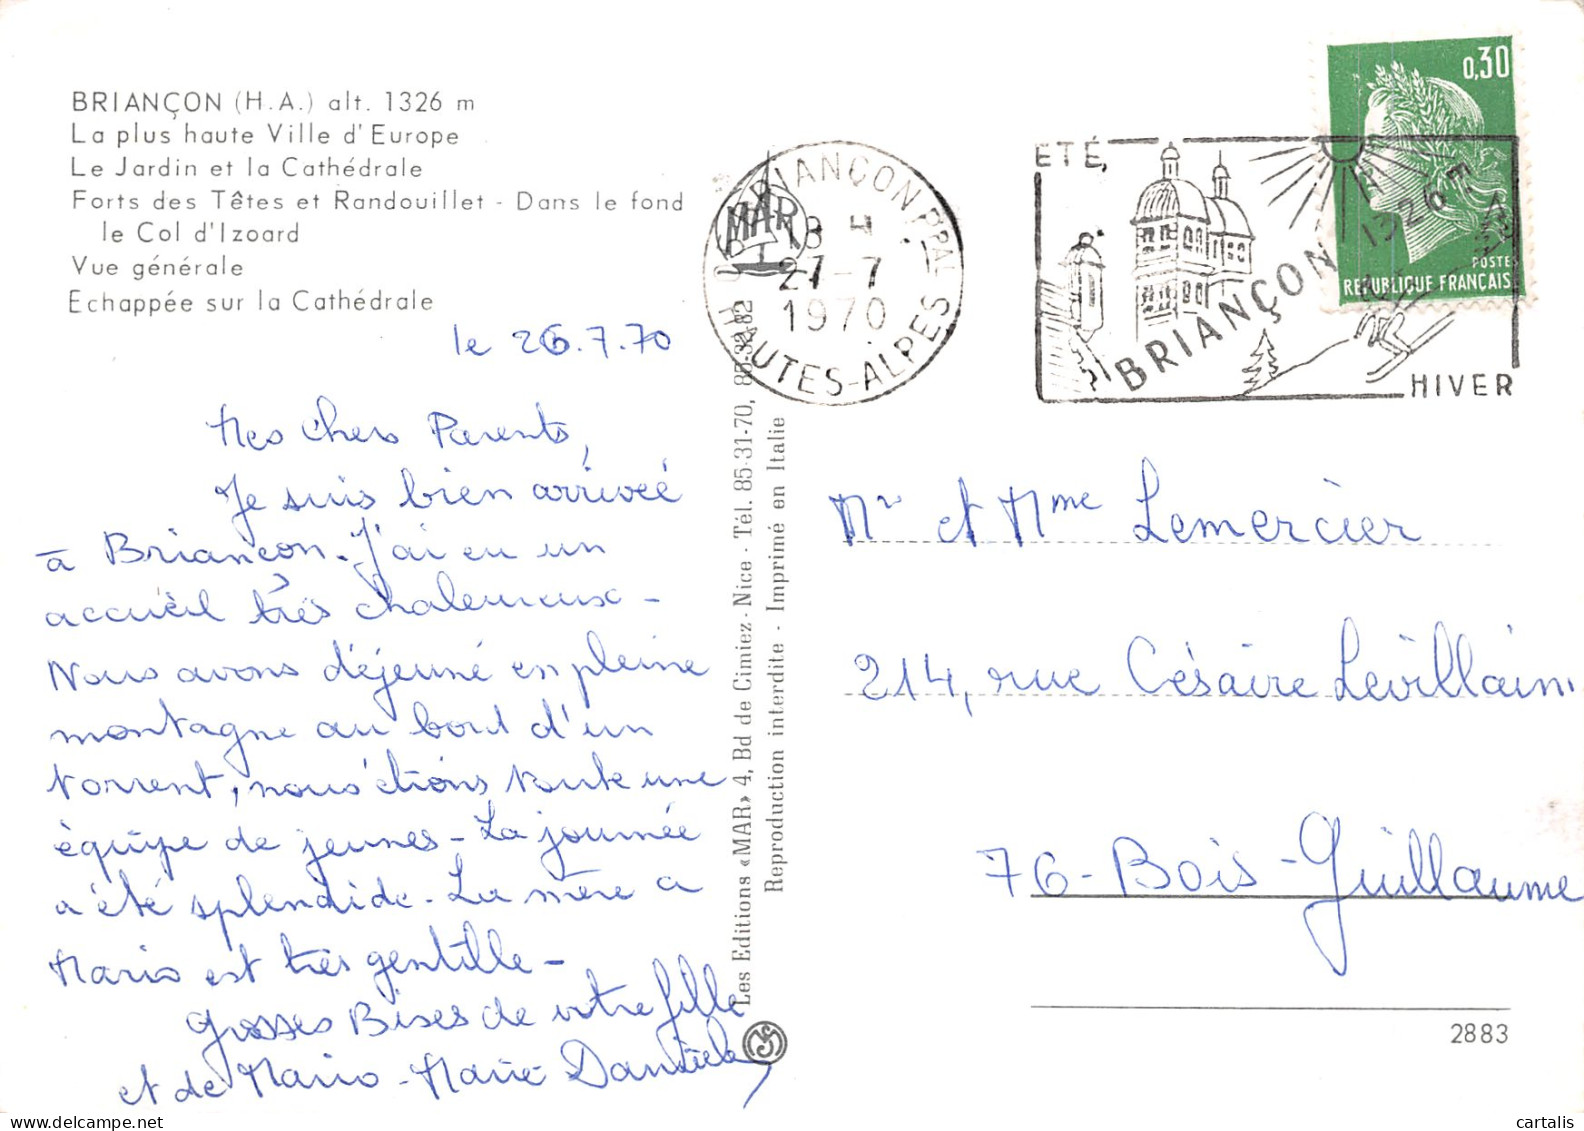 BRIANÇON (H.A.) alt. 1326 m
La plus haute Ville d'Europe
Le Jardin et la Cathédrale
Forts des Têtes et Randouillet - Dans le fond
le Col d'Izoard
Vue générale
Echappée sur la Cathédrale
le 26.7.70
Mes chers Parents,
Je suis bien arrivée
à Briançon. J'ai eu un
accueil très chaleureux -
Nous avons déjeuné en pleine
montagne au bord d'un
torrent, nous étions toute une
équipe de jeunes - La journée
a été splendide. La mère a
Mario est très gentille -
Grosses Bises de votre fille
et de Mario - Marie Danièle
MAR
BRIANÇON PPAL
18 H
27-7
1970
HAUTES-ALPES
ETÉ,
BRIANÇON 1326 m
HIVER
0,30
POSTES
REPUBLIQUE FRANÇAISE
Les Editions «MAR» 4, Bd de Cimiez - Nice - Tél. 85-31-70, 85-32-82
Reproduction interdite - Imprimé en Italie
Mr et Mme Lemercier
214, rue Césaire Levillain
76-Bois-Guillaume
2883
cartalis